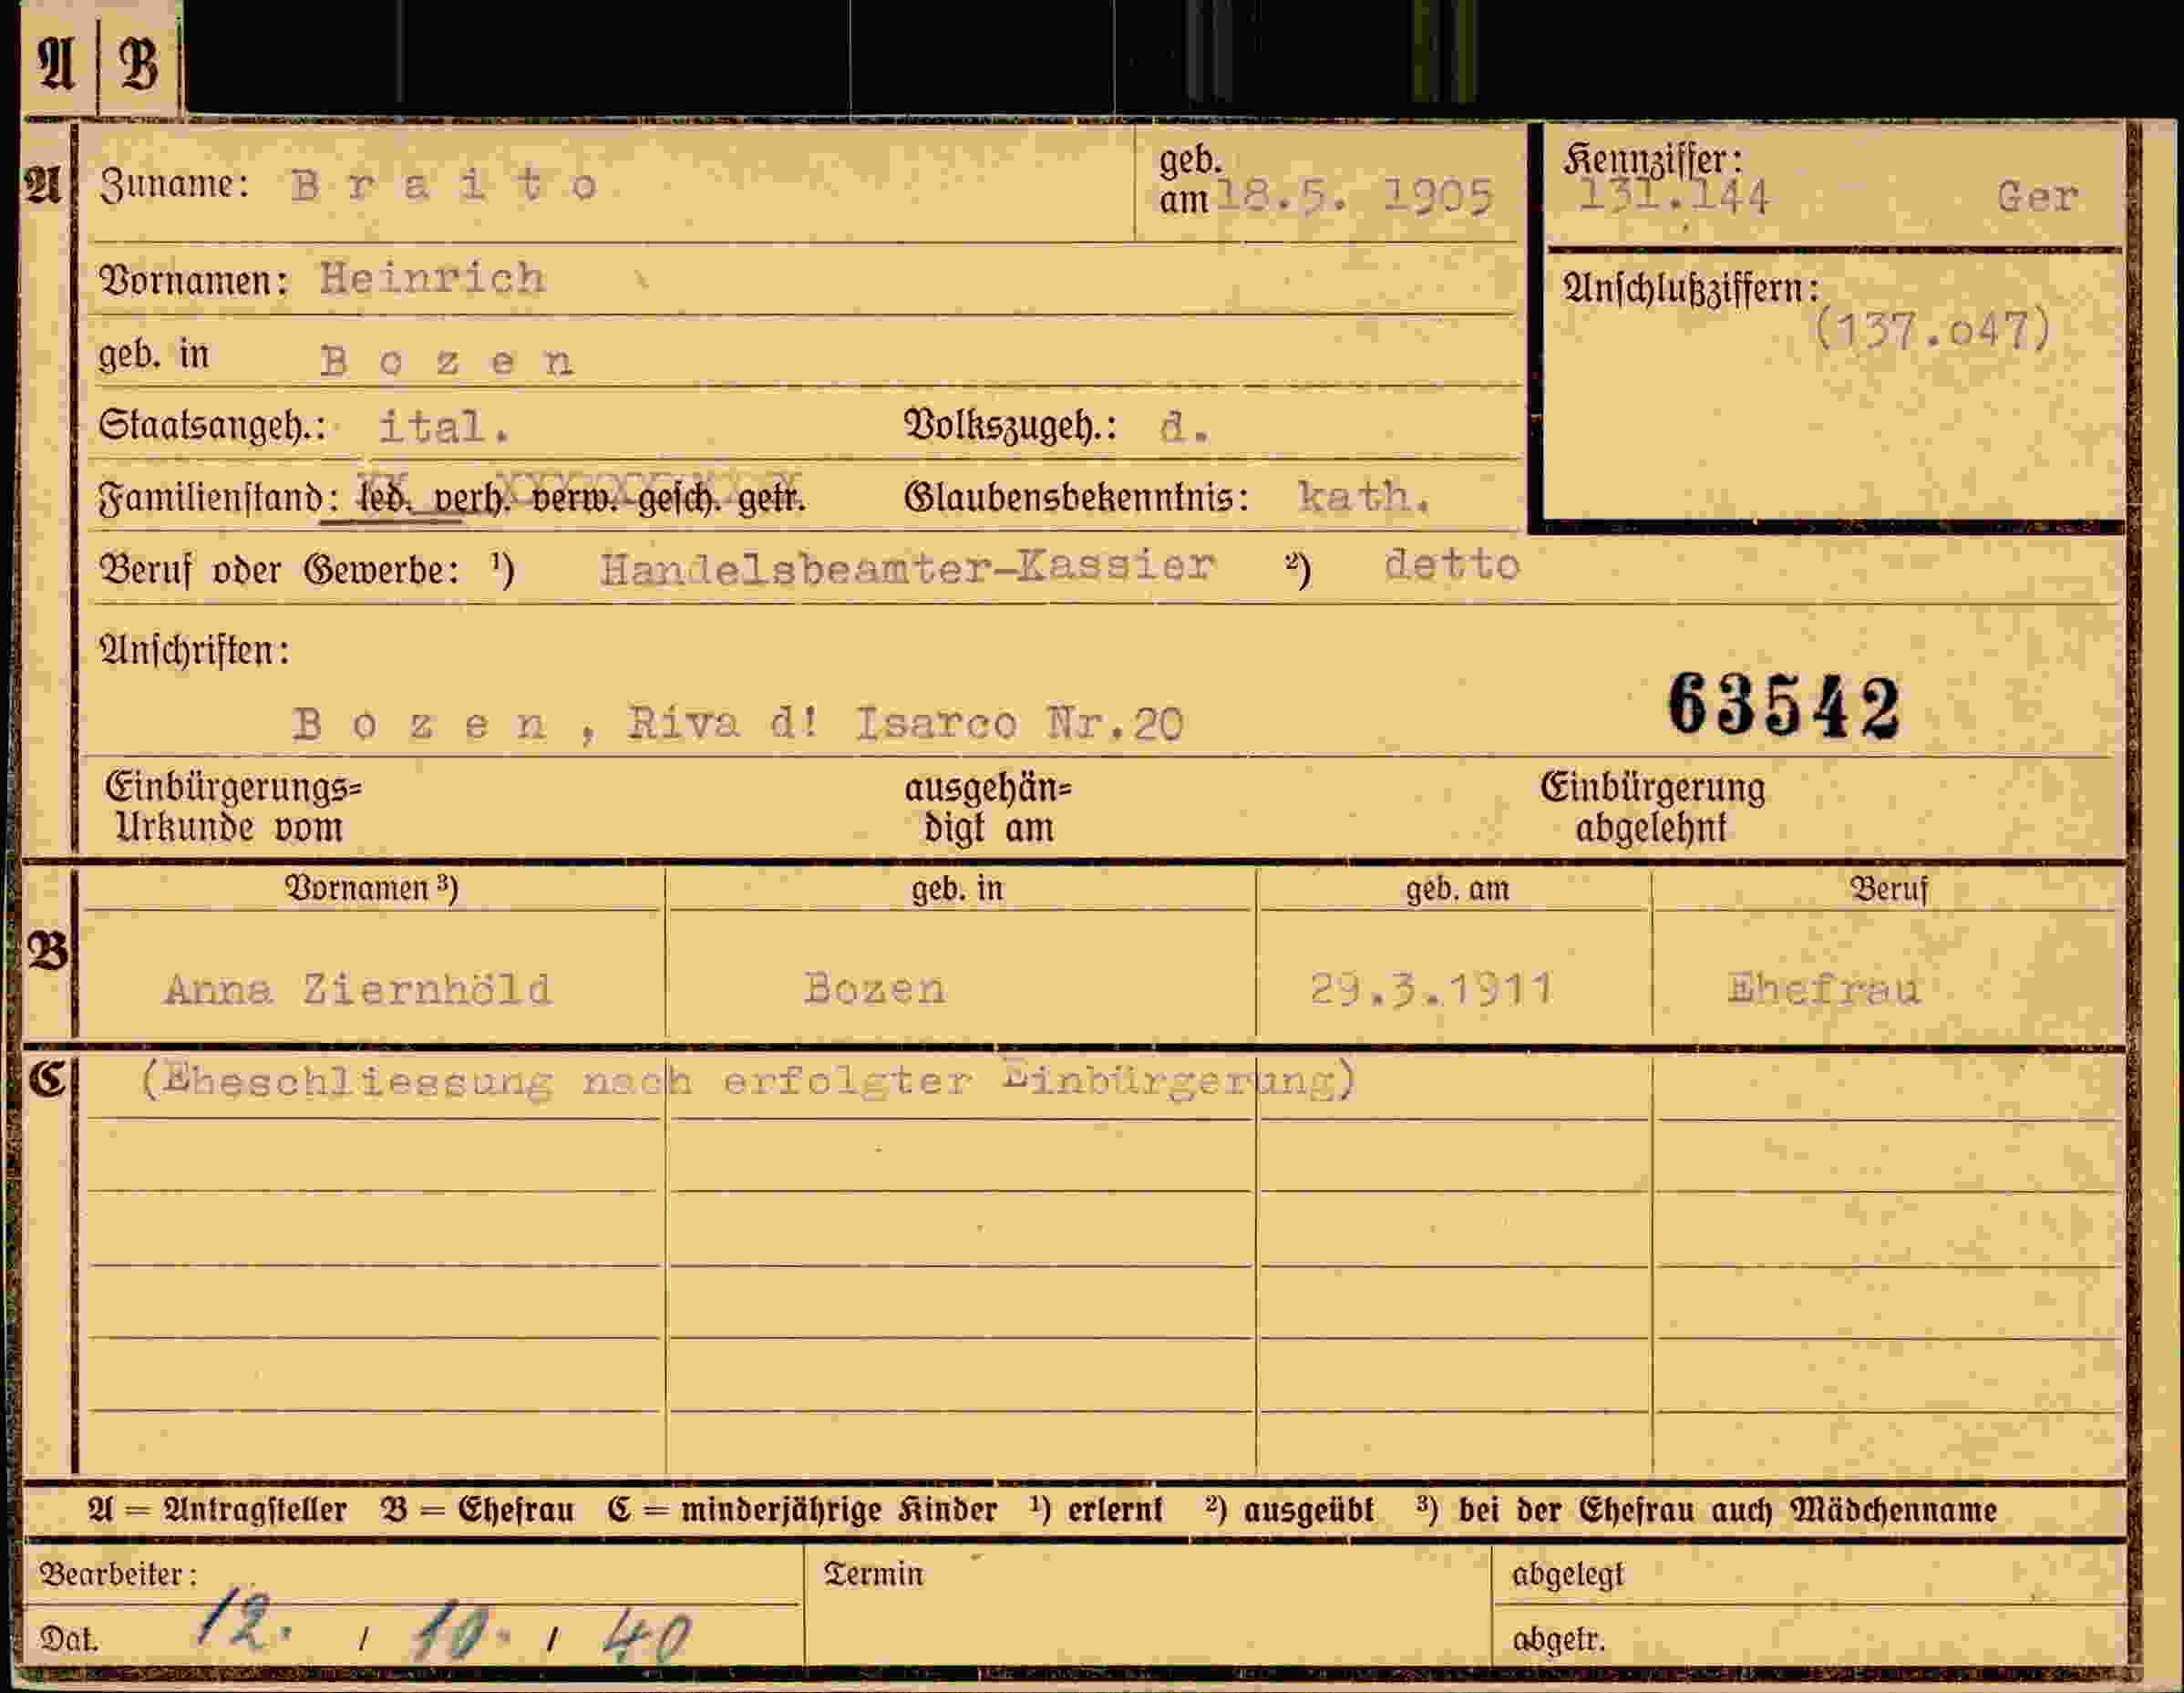 A | B
A Zuname: B r a i t o geb. am 18.5. 1905 Kennziffer: 131.144 Ger
Vornamen: Heinrich
Anschlußziffern: (137.o47)
geb. in B o z e n
Staatsangeh.: ital. Volkszugeh.: d.
Familienstand: led. verh. verw. gesch. getr. Glaubensbekenntnis: kath.
Beruf oder Gewerbe: ¹) Handelsbeamter-Kassier ²) detto
Anschriften:
63542
B o z e n , Riva d! Isarco Nr.20
Einbürgerungs= ausgehän= Einbürgerung
Urkunde vom digt am abgelehnt
Vornamen ³) geb. in geb. am Beruf
B
Anna Ziernhöld Bozen 29.3.1911 Ehefrau
C (Eheschliessung nach erfolgter Einbürgerung)
A = Antragsteller B = Ehefrau C = minderjährige Kinder ¹) erlernt ²) ausgeübt ³) bei der Ehefrau auch Mädchenname
Bearbeiter: Termin abgelegt
Dat. 12. / 10. / 40 abgetr.